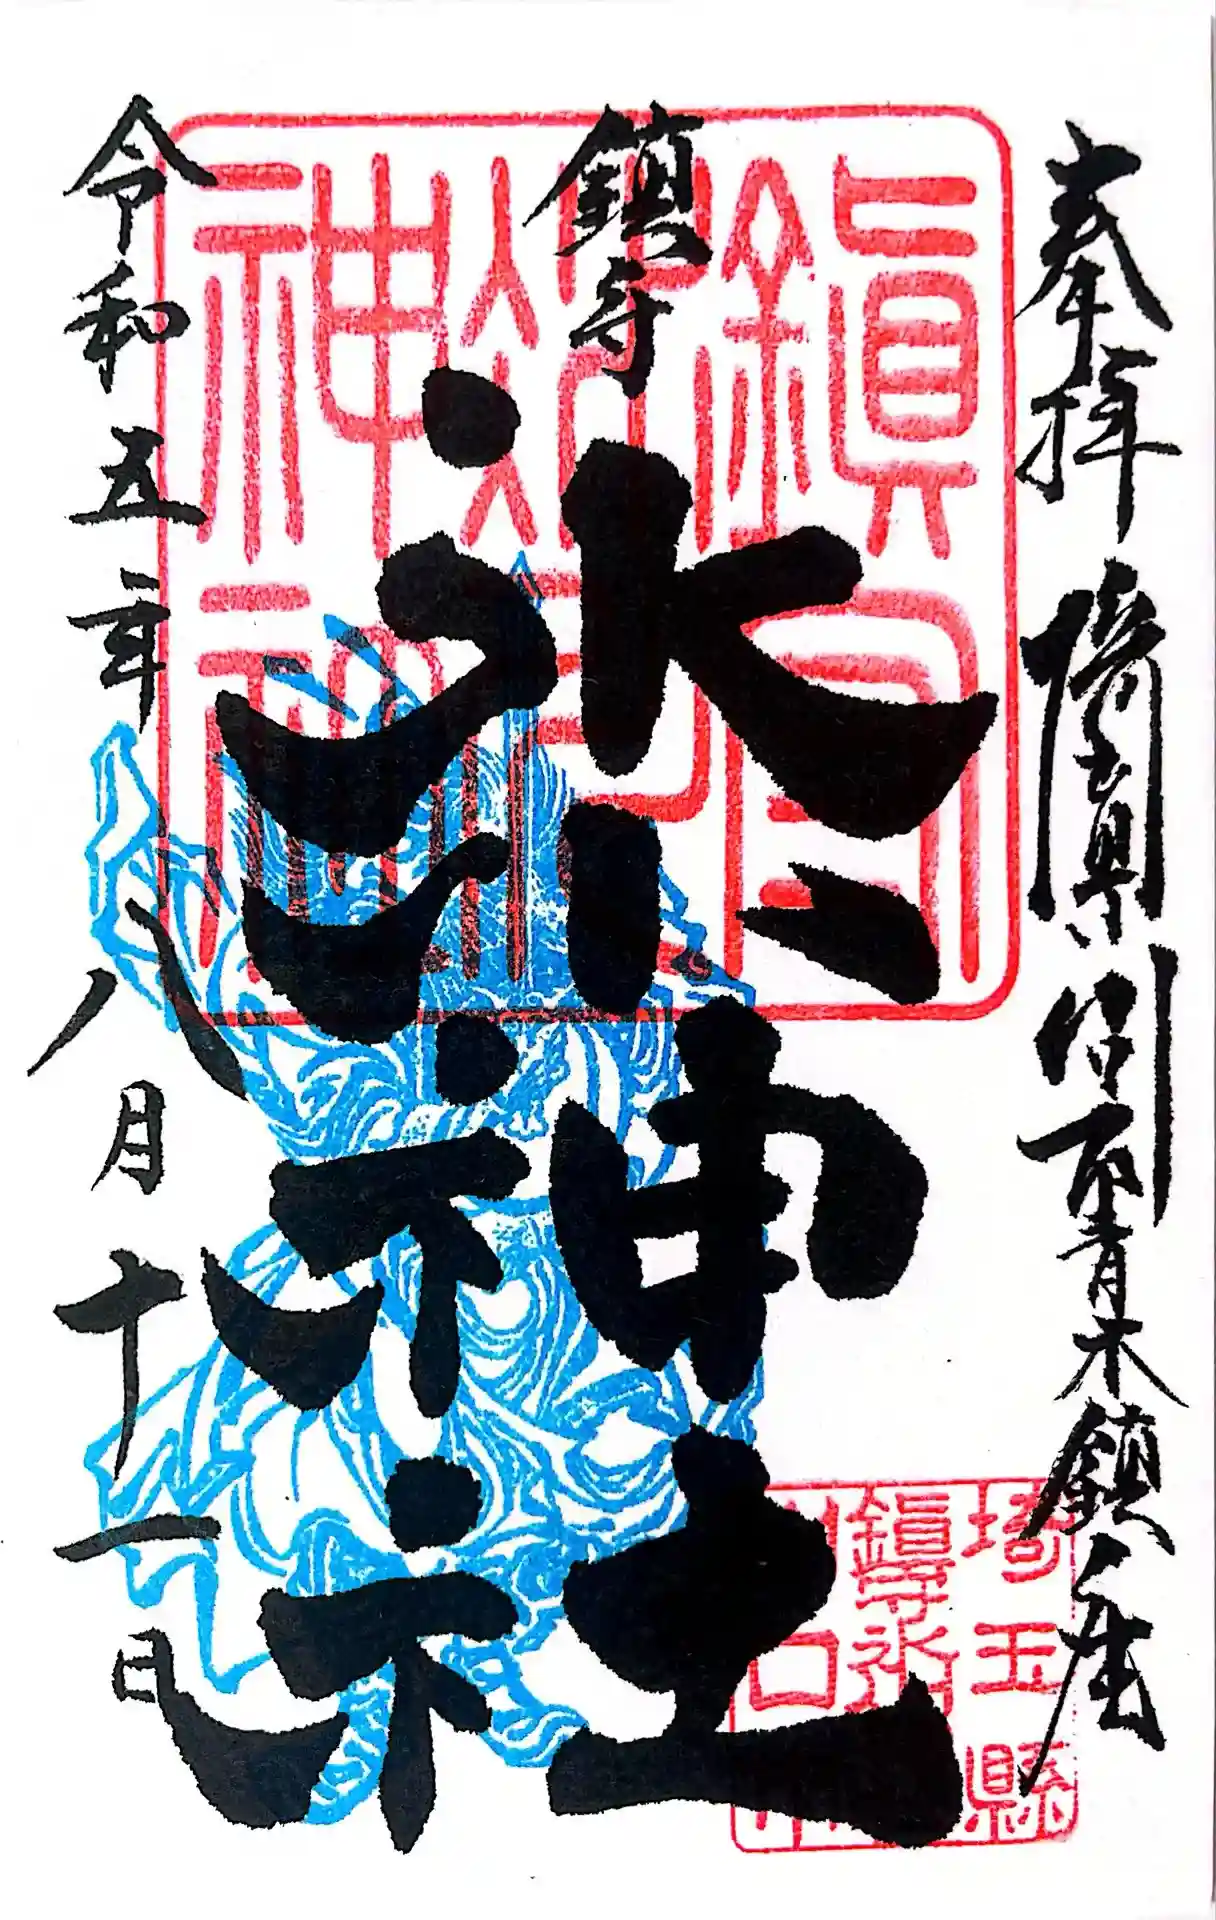 奉拝 埼玉県川口市青木鎮座
鎮守
氷川神社
令和五年八月十一日
埼玉縣
鎭守氷川
川口